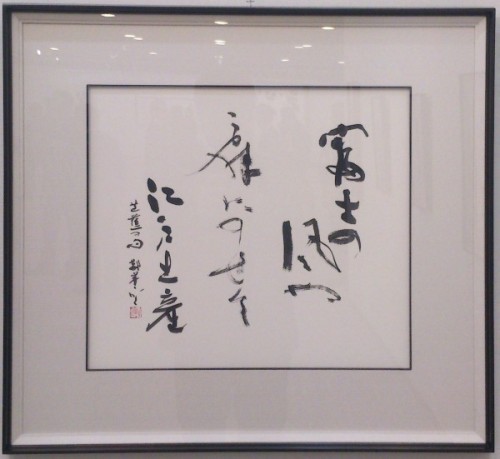 富士の
風や
扇にのせて
江戸土産
芭蕉の句